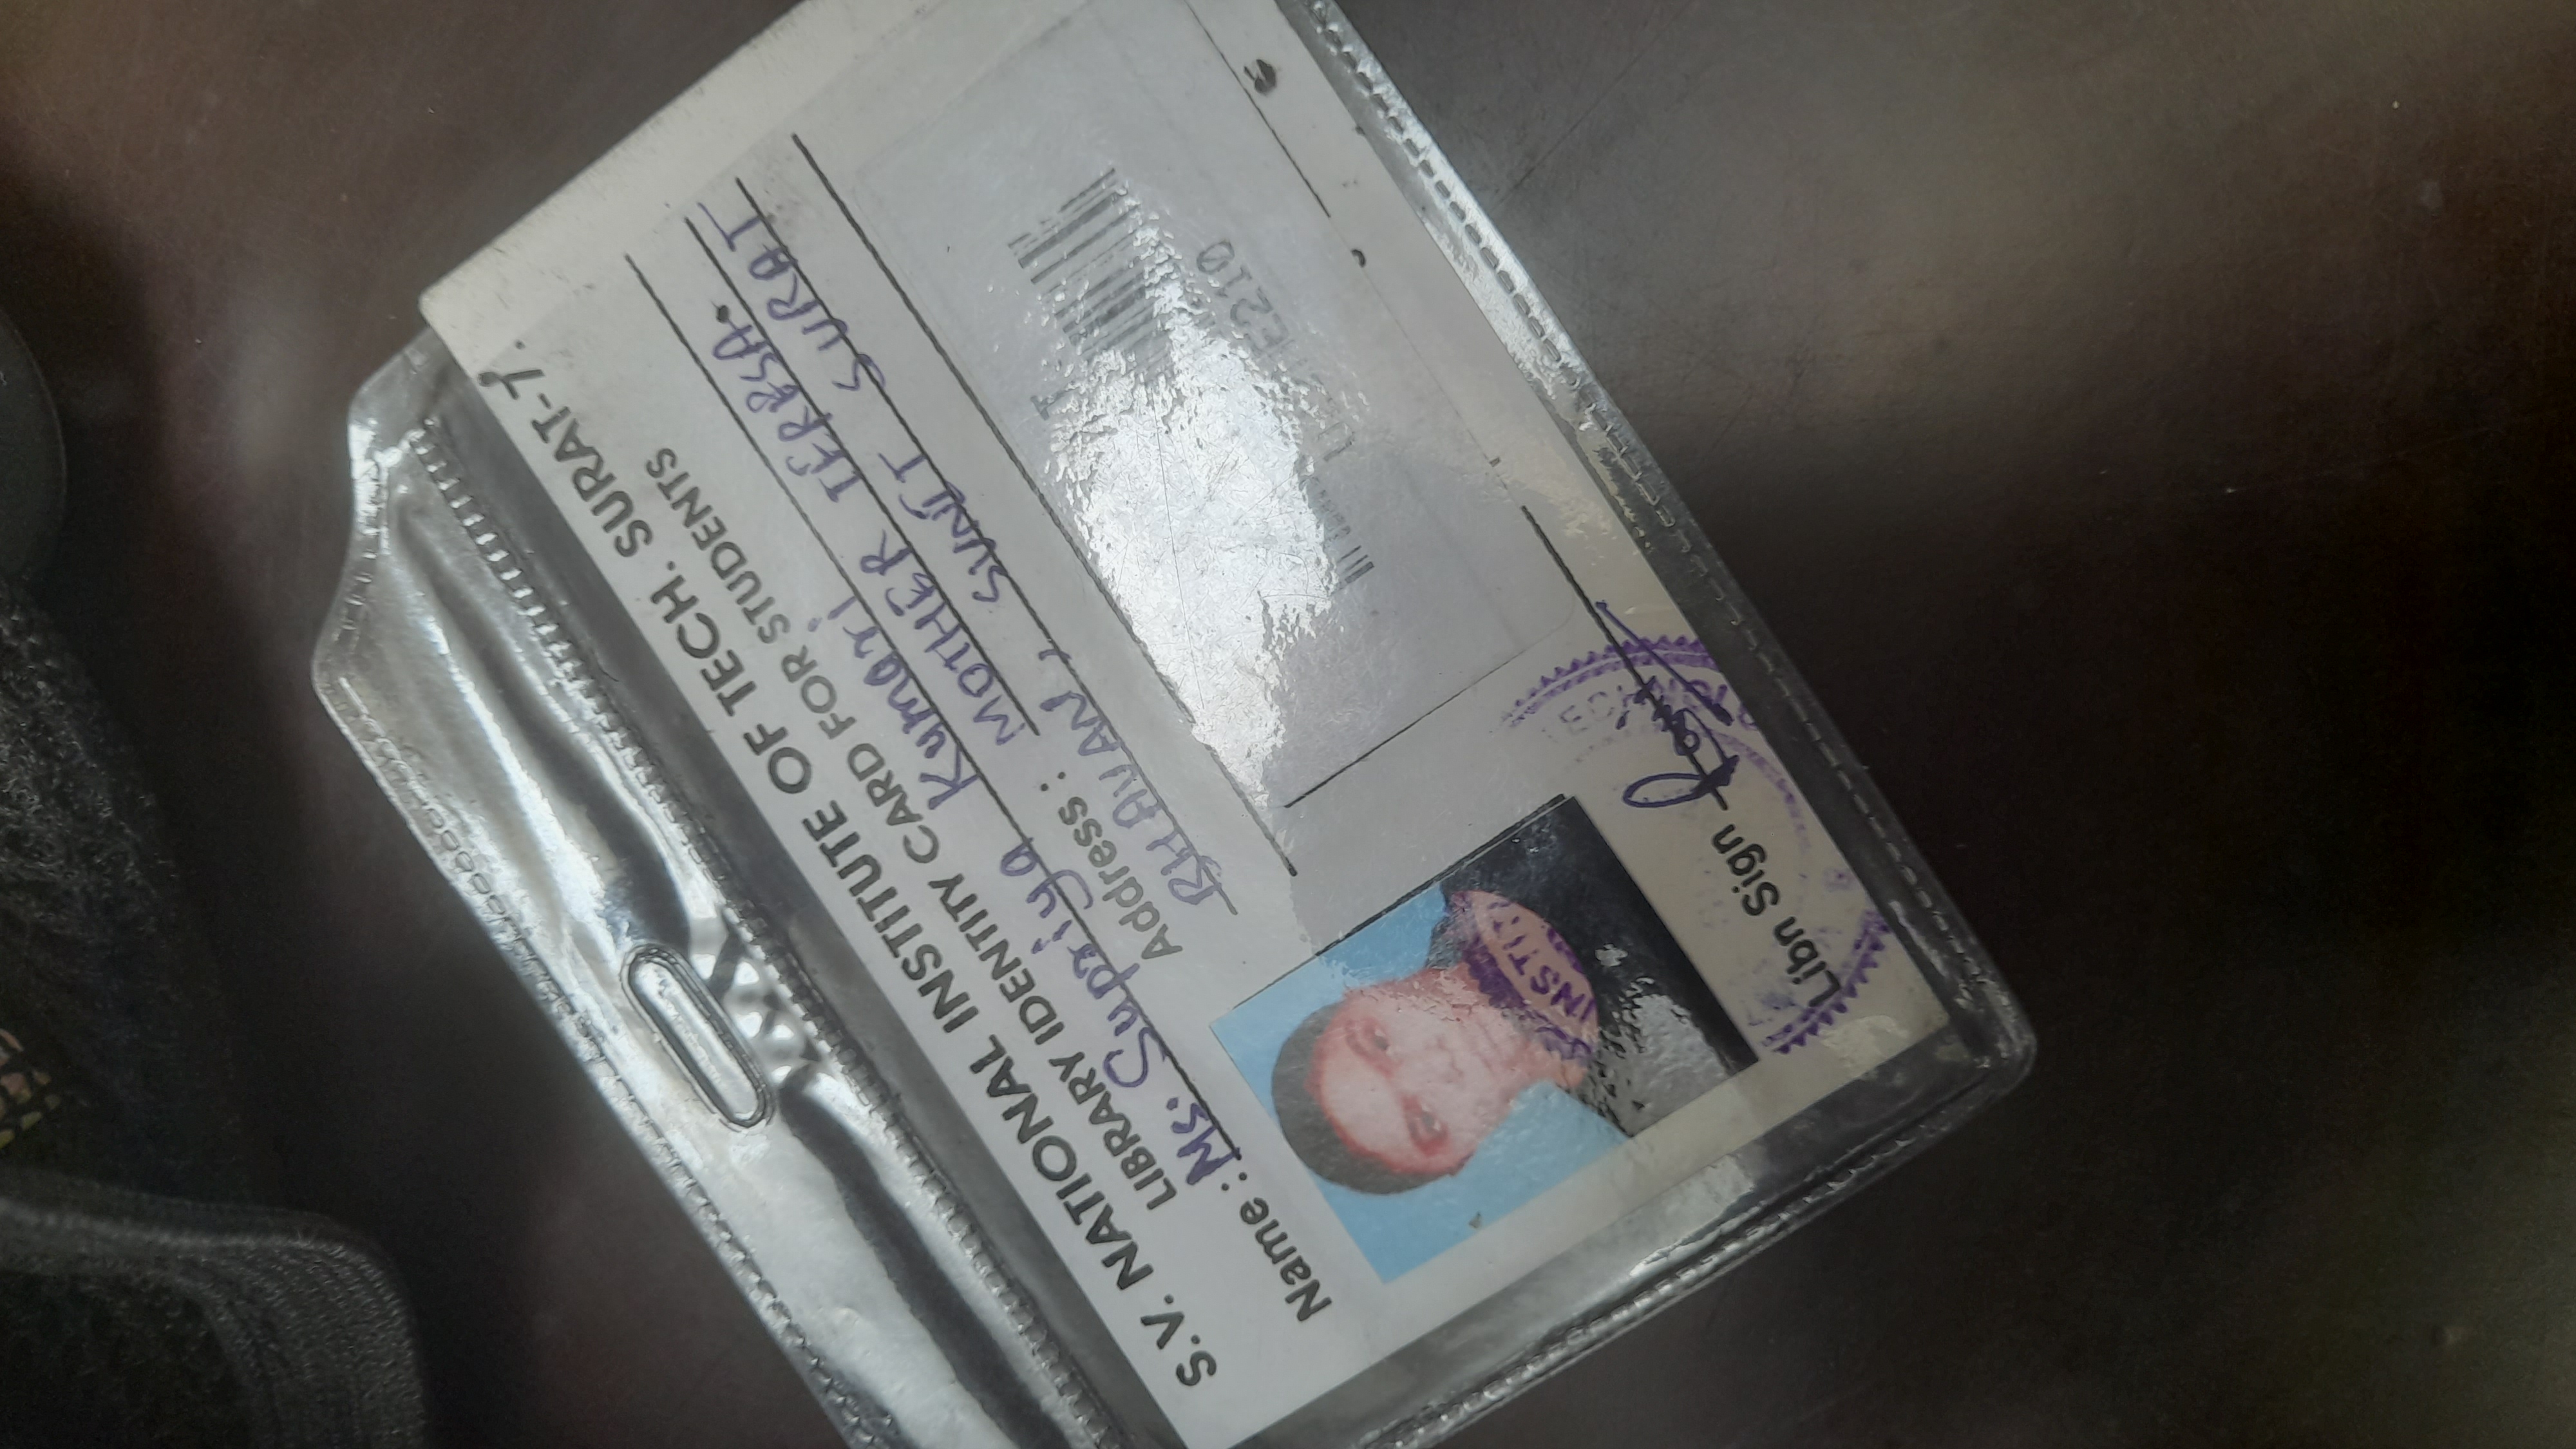 S.V. NATIONAL INSTITUTE OF TECH. SURAT-7.
LIBRARY IDENTITY CARD FOR STUDENTS
Name : Ms. Supriya Kumari
Address : MOTHER TERESA.
BHAVAN, SVNIT SURAT
E210
INSTIT
Libn Sign